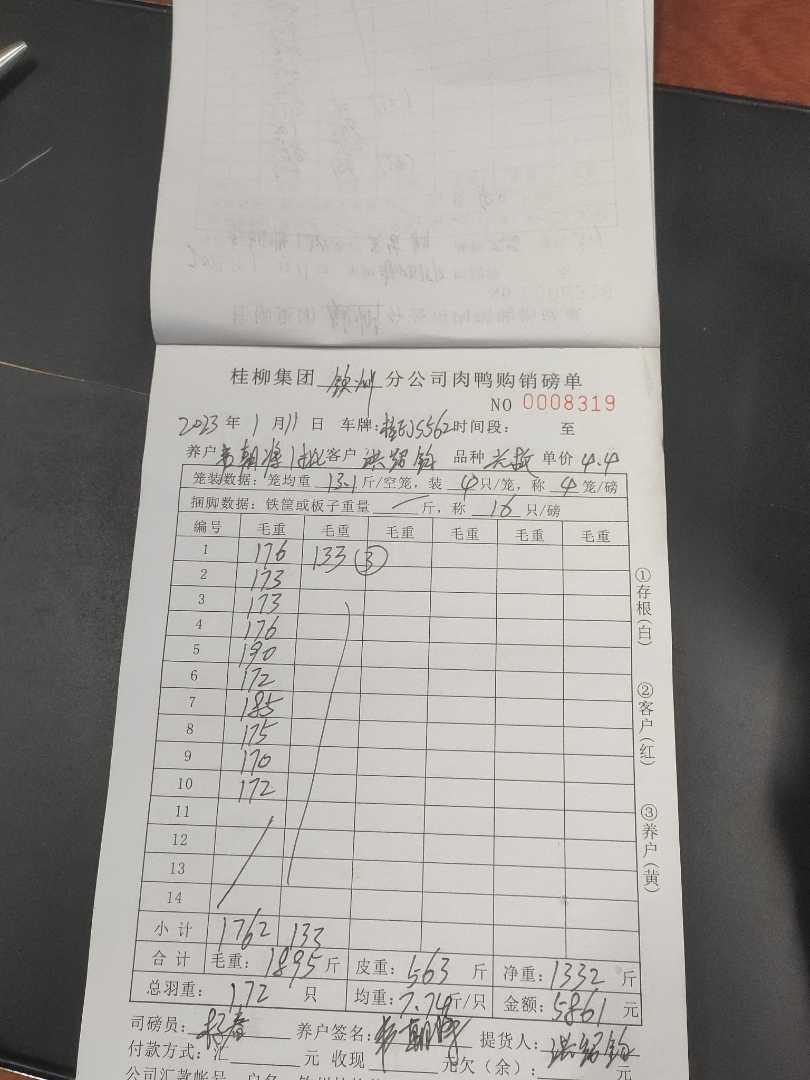 桂柳集团 钦州 分公司肉鸭购销磅单
NO 0008319
2023 年 1 月 11 日 车牌:桂EJ5562 时间段: 至
养户 朝 批 客户 洪绍钧 品种 单价 4.4
笼装数据: 笼均重 13.1 斤/空笼, 装 4 只/笼, 称 4 笼/磅
捆脚数据: 铁筐或板子重量 斤, 称 16 只/磅
编号 毛重 毛重 毛重 毛重 毛重 毛重
1 176 133 ③
2 173
3 173
4 176
5 190
6 172
7 185
8 175
9 170
10 172
11
12
13
14
小计 1762 133
合计 毛重: 1895 斤 皮重: 563 斤 净重: 1332 斤
总羽重: 172 只 均重: 7.74 斤/只 金额: 5861 元
司磅员: 春 养户签名: 朝 提货人: 洪绍钧
付款方式: 汇 元 收现 元欠(余): 元
公司汇款帐号 户名
①存根(白)
②客户(红)
③养户(黄)